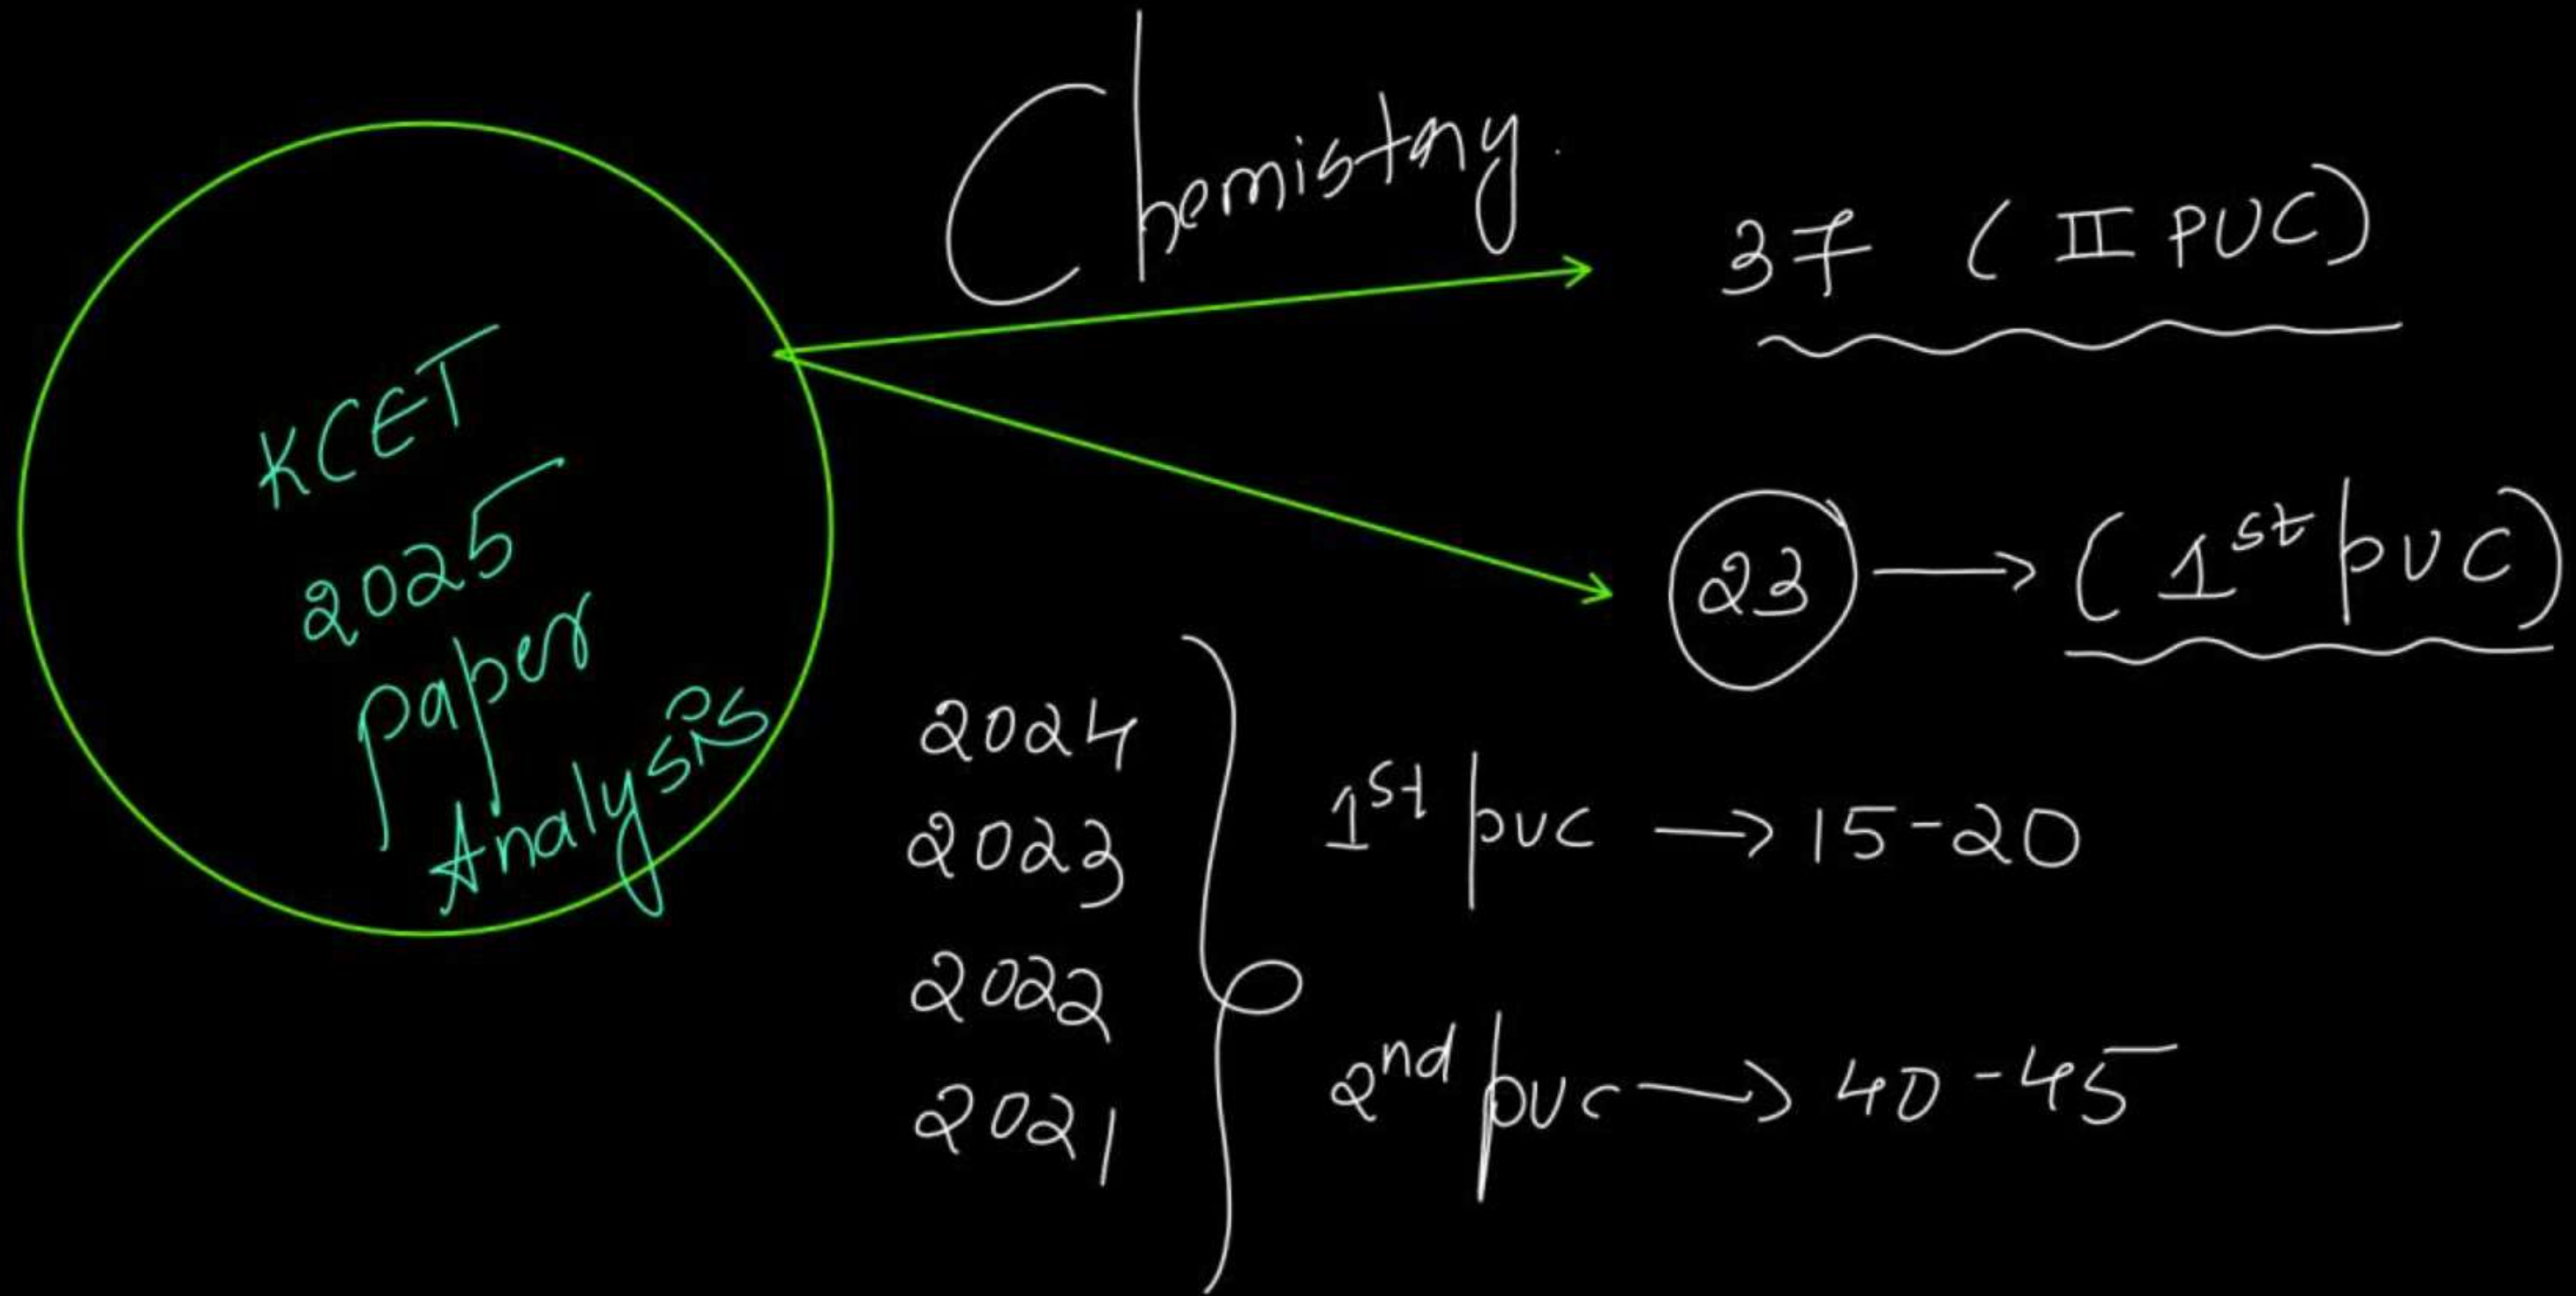 KCET
2025
paper
Analysis
Chemistry.
37 (II PUC)
23 → (1st puc)
2024
2023
2022
2021
1st puc → 15-20
2nd puc → 40-45